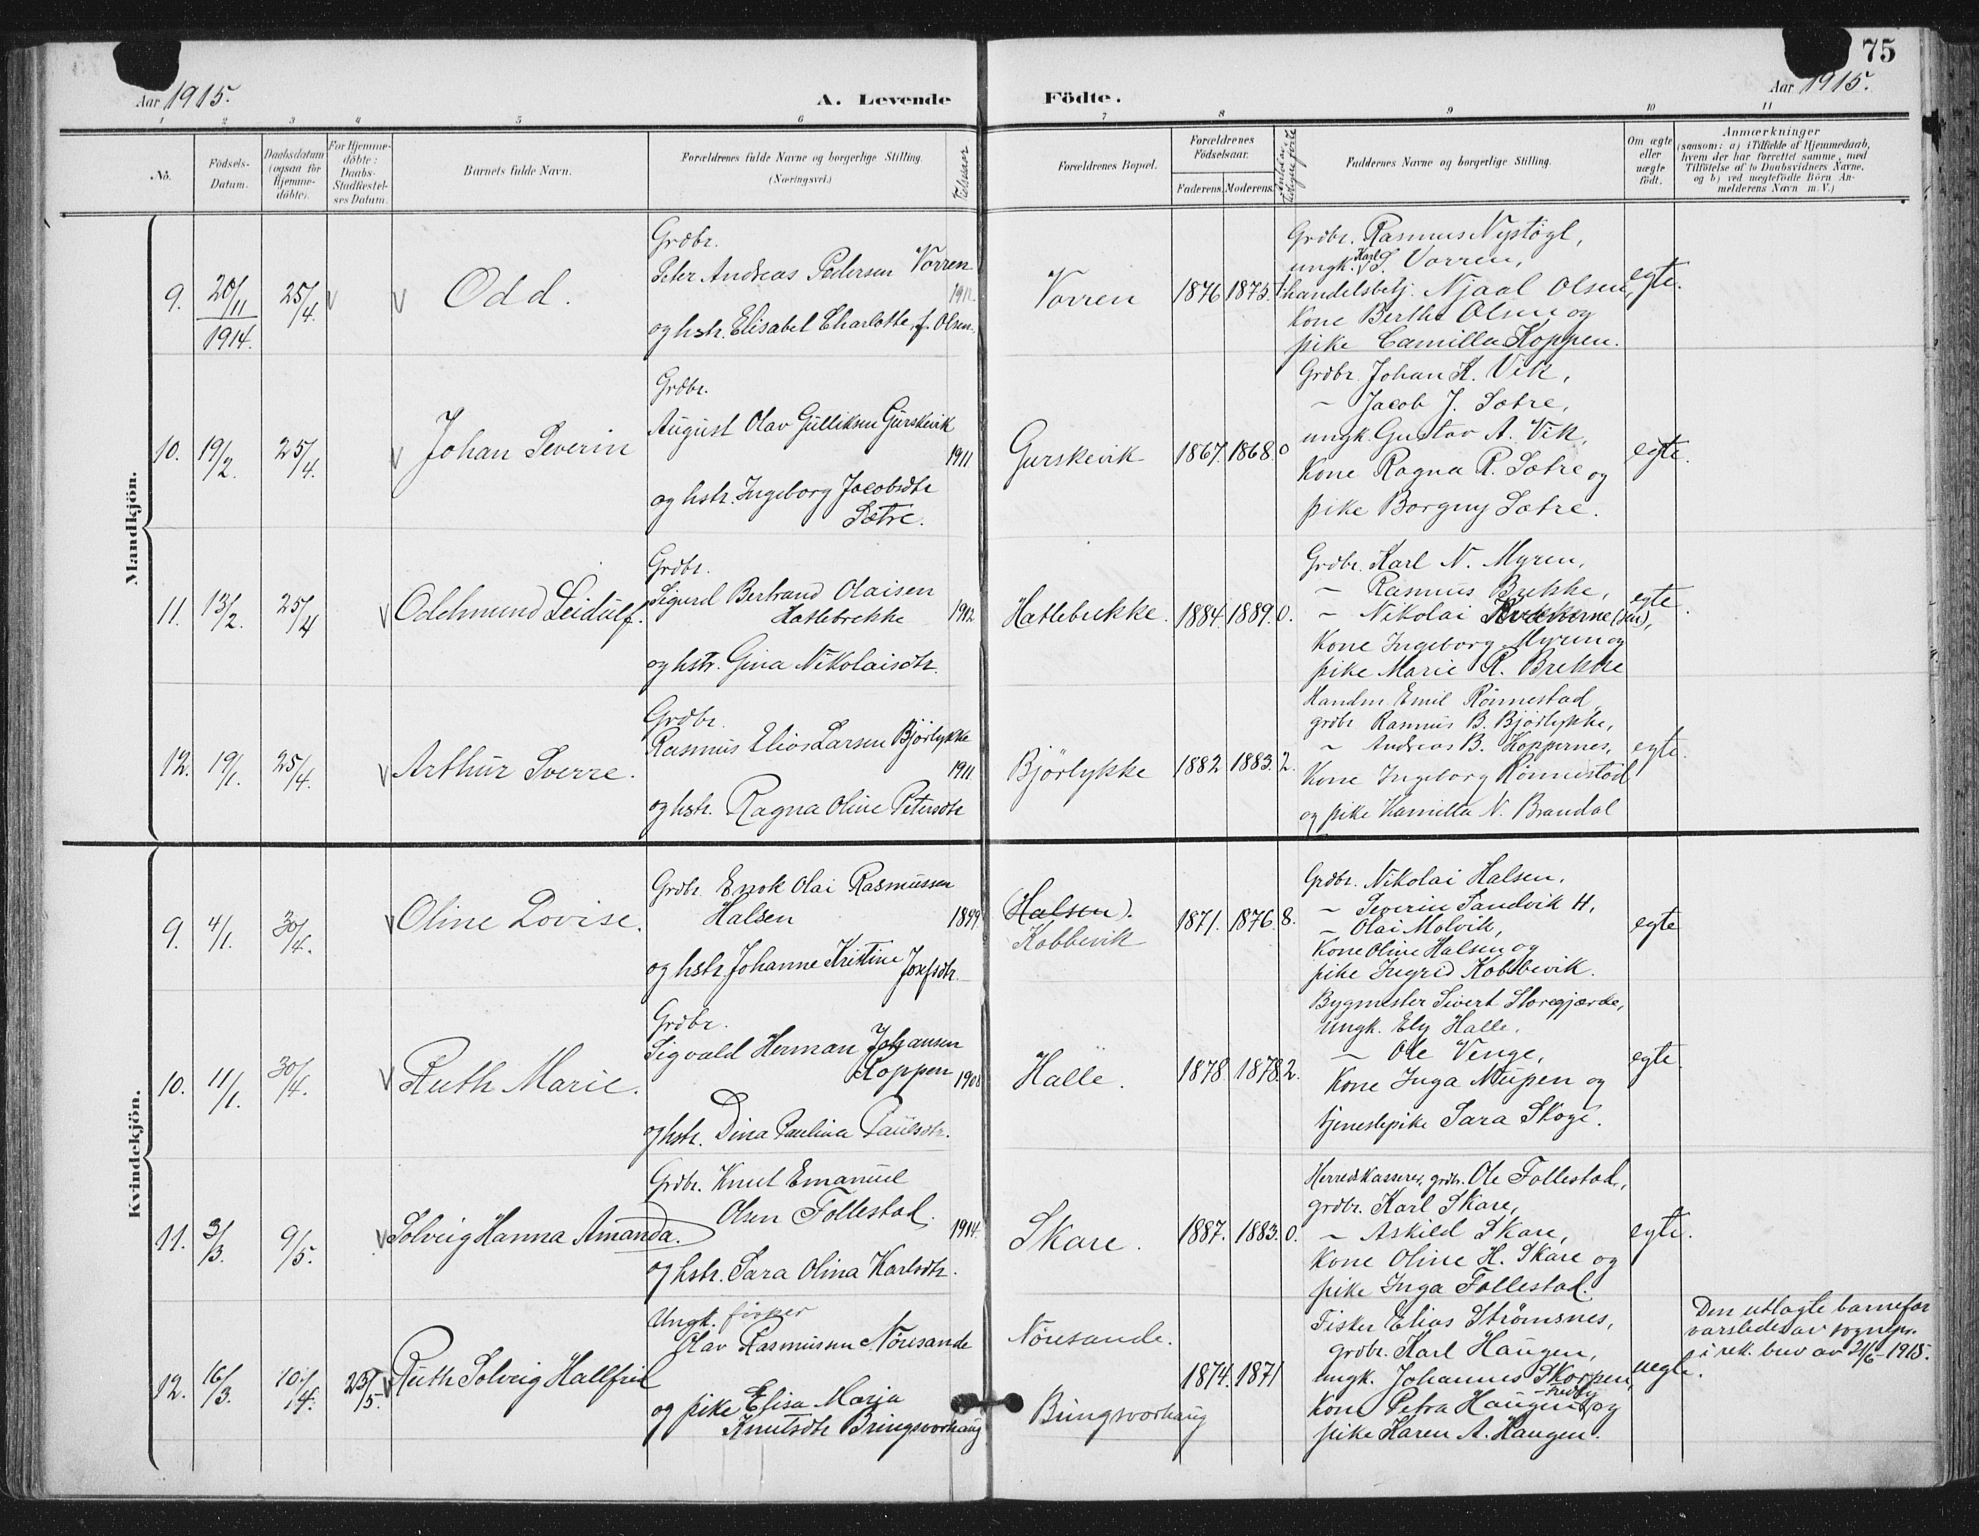 75
Aar 1915.
A. Levende Födte.
Aar 1915.
1 2 3 4 5 6 7 8 9 10 11
No.
Födsels-Datum.
Daabsdatum (ogsaa for Hjemmedöbte).
For Hjemmedöbte: Daabs-Stadfæstelses Datum.
Barnets fulde Navn.
Forældrenes fulde Navne og borgerlige Stilling. (Næringsvei.)
Vielsesaar
Forældrenes Bopæl.
Forældrenes Födselsaar.
Faderens. Moderens.
Faddernes Navne og borgerlige Stilling.
Om ægte eller uægte födt.
Anmærkninger
(saasom: a) i Tilfælde af Hjemmedaab, hvem der har forrettet samme, med Tilföielse af to Daabsvidners Navne, og b) ved uægtefödte Börn Anmelderens Navn m. V.)
Mandkjön.
9. 20/11 1914. 25/4. V V Odd.
Grdbr.
Peter Andreas Pedersen Vorren
1912
og hstr. Elisabet Charlotte, f. Olsen.
Vorren 1876 1875 1.
Grdbr. Rasmus Nystøyl,
ungk. Karl S. Vorren,
handelsbetj. Njaal Olsen,
Kone Berthe Olsen og
pike Camilla Koppen.
egte.
10. 19/2. 25/4. V Johan Severin
Grdbr.
August Olav Gulliksen Gurskevik
1911
og hstr. Ingeborg Jacobsdtr
Sætre.
Gurskevik 1867. 1868. 0
Grdbr. Johan K. Vik,
— Jacob J. Sætre,
ungk. Gustav A. Vik,
Kone Ragna R. Sætre og
pike Borgny Sætre.
egte.
11. 13/2. 25/4 V Oddmund Leidulf.
Grdbr.
Sigurd Bertrand Olaisen
Hatlebrekke
1912
og hstr. Gina Nikolaisdtr.
Hatlebrekke. 1884. 1889. 0.
Grdbr. Karl N. Myren,
— Rasmus Brekke,
— Nikolai
Kone Ingeborg Myren og
pike Marie R. Brekke
egte.
12. 19/1. 25/4. V Arthur Sverre.
Grdbr.
Rasmus Elias Larsen Bjørlykke
1911
og hstr. Ragna Oline Petersdtr
Bjørlykke 1882 1883. 2.
Handm. Emil Rønnestad,
grdbr. Rasmus B. Bjørlykke,
— Andreas B. Koppernes,
Kone Ingeborg Rønnestad
og pike Kamilla N. Brandal
egte.
Kvindekjön.
9. 4/1. 30/4. V Oline Lovise.
Grdbr. Enok Olai Rasmussen
Halsen
1899
og hstr. Johanne Kristine Josefsdtr.
(Halsen).
Kobbevik
1871. 1876. 8.
Grdbr. Nikolai Halsen,
— Severin Sandvik H,
— Olai Molvik,
Kone Oline Halsen og
pike Ingrid Kobbevik.
egte
10. 11/1. 30/4. V Ruth Marie.
Grdbr.
Sigvald Herman Johansen
Koppen 1908
og hstr. Dina Paulina Paulsdtr.
Halle. 1878. 1878. 2.
Bygmester Sivert Storegjærde,
ungk. Ely Halle,
— Ole Venge,
Kone Inga Mupen og
tjenestepike Sara Skoge.
egte.
11. 3/3. 9/5. V Solveig Hanna Amanda.
Grdbr. Knut Emanuel
Olsen Follestad.
1914.
og hstr. Sara Olina Karlsdtr.
Skare. 1887. 1883. 0.
Herredskasserer, grdbr. Ole Follestad,
grdbr. Karl Skare,
— Askild Skare,
Kone Oline H. Skare og
pike Inga Follestad.
egte.
12. 16/3. 10/4. 23/5. V Ruth Solveig Hallfrid
Ungk. fisker
Olav Rasmussen Nøresande
og pike Elisa Marja
Knutsdtr Bringsvorhaug
Nøresande.
Bringsvorhaug
1874. 1871
Fisker Elias Strømsnes,
grdbr. Karl Haugen,
ungk. Johannes Skorpen,
Kone Petra Haugen og
pike Karen A. Haugen.
uegte.
Den utlagte barnefar
varsledes av sognepr.
i rek. brev av 21/6-1915.